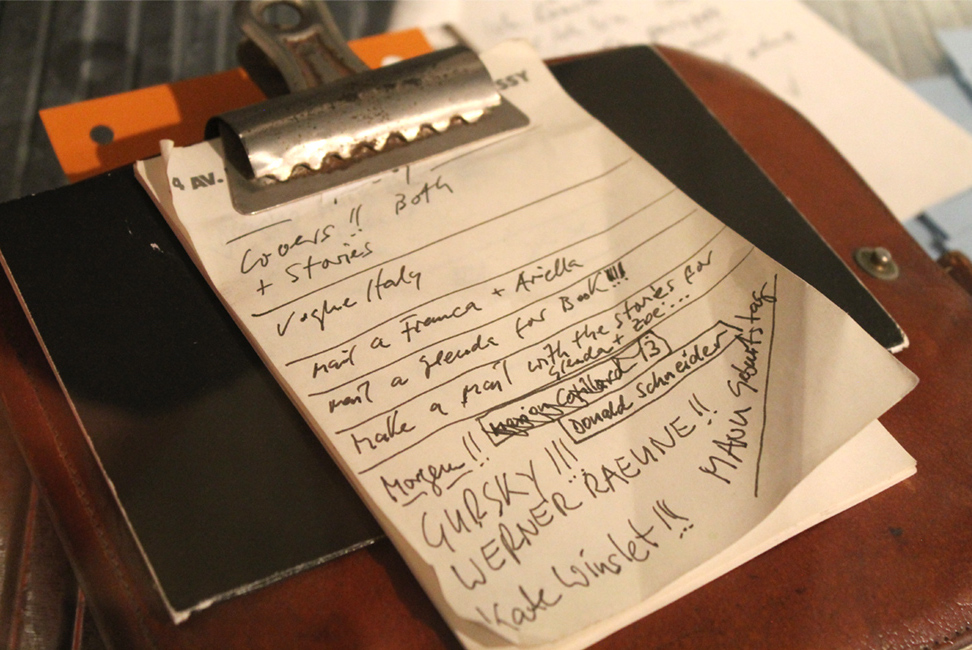 4 AV.
SSY
Covers !! Both
+ Stories
Vogue Italy
mail a Franca + Ariella
mail a glenda for Book!!!
Make a mail with the stories for
glenda + Zoe ....
Marion Cotillard 13
Donald Schneider
Morgen !!
GURSKY !!!
WERNER RAEUNE !!
MANU Geburtstag
Kate Winslet !!!